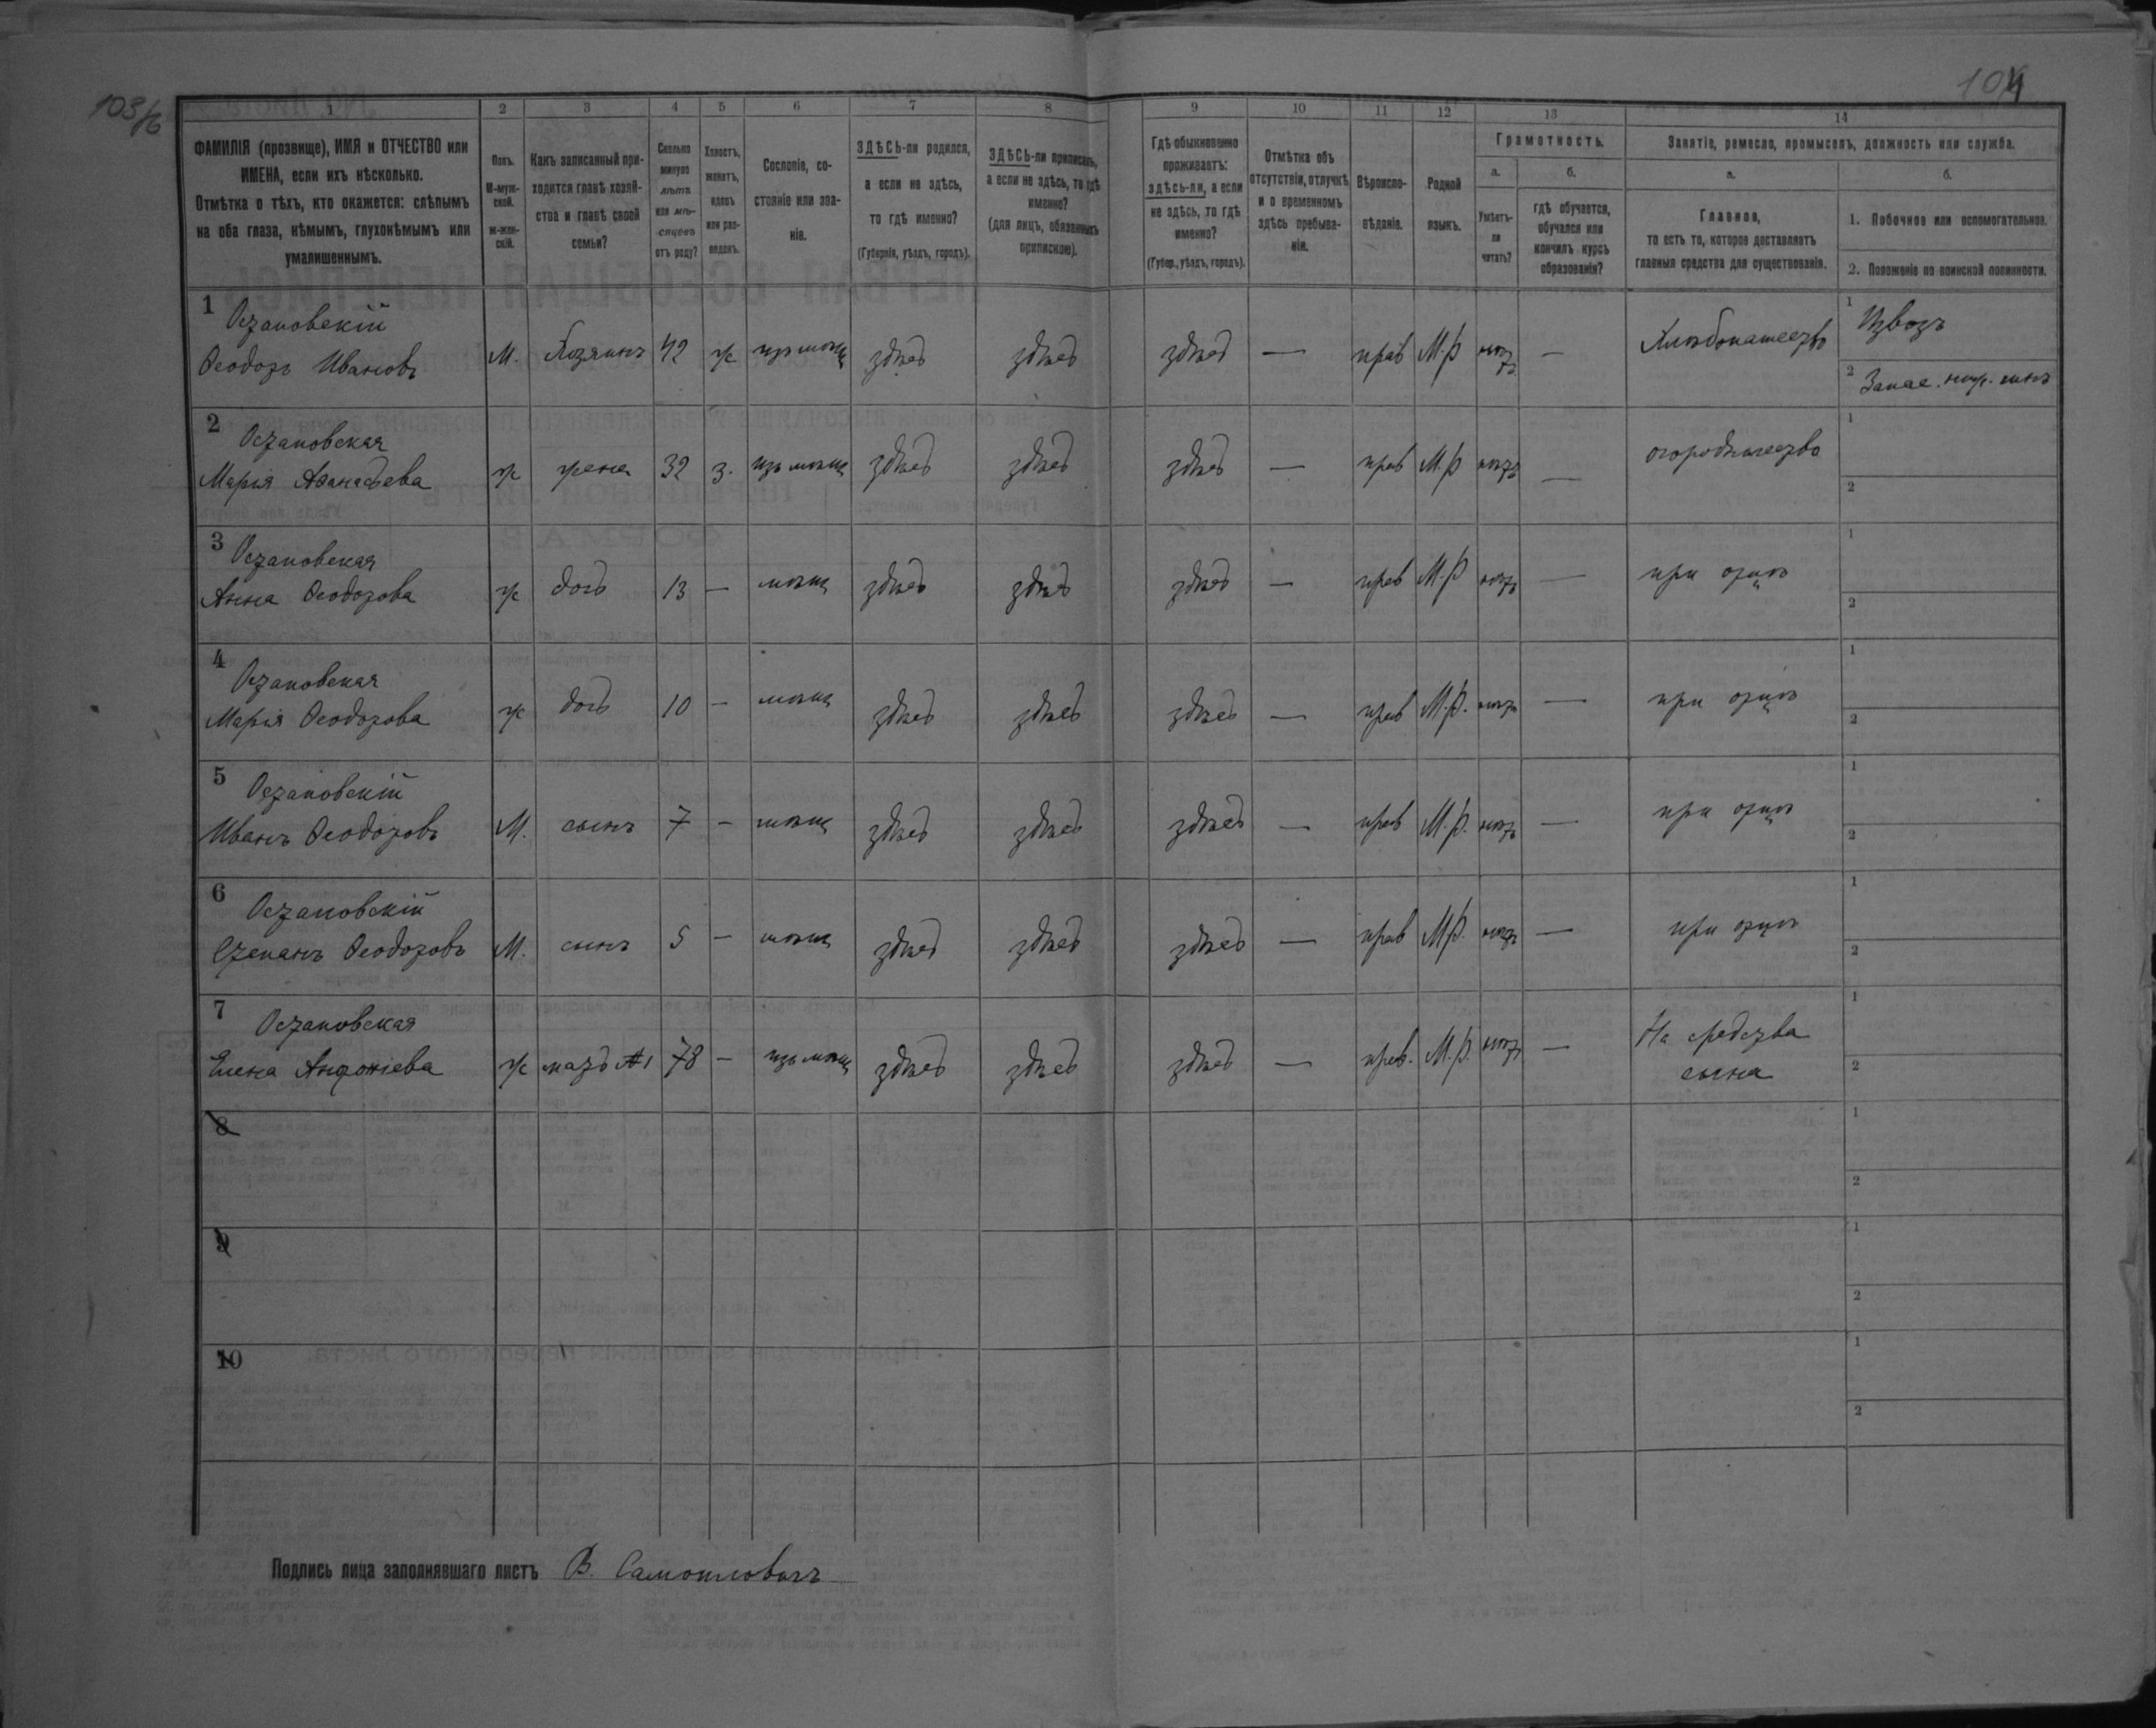 103/б
104
1 2 3 4 5 6 7 8 9 10 11 12 13 14
ФАМИЛІЯ (прозвище), ИМЯ и ОТЧЕСТВО или
ИМЕНА, если ихъ нѣсколько.
Отмѣтка о тѣхъ, кто окажется: слѣпымъ
на оба глаза, нѣмымъ, глухонѣмымъ или
умалишеннымъ.
Полъ.
М-муж-
ской.
ж-жен-
скій.
Какъ записанный при-
ходится главѣ хозяй-
ства и главѣ своей
семьи?
Сколько
минуло
лѣтъ
или мѣ-
сяцевъ
отъ роду?
Холостъ,
женатъ,
вдовъ
или раз-
веденъ.
Сословіе, со-
стояніе или зва-
ніе.
ЗДѢСЬ-ли родился,
а если не здѣсь,
то гдѣ именно?
(Губернія, уѣздъ, городъ).
ЗДѢСЬ-ли приписанъ,
а если не здѣсь, то гдѣ
именно?
(для лицъ, обязанныхъ
припискою).
Гдѣ обыкновенно
проживаетъ:
здѣсь-ли, а если
не здѣсь, то гдѣ
именно?
(Губер., уѣздъ, городъ).
Отмѣтка объ
отсутствіи, отлучкѣ
и о временномъ
здѣсь пребыва-
ніи.
Вѣроиспо-
вѣданіе.
Родной
языкъ.
Грамотность.
а.
Умѣетъ-
ли
читать?
б.
гдѣ обучается,
обучался или
кончилъ курсъ
образованія?
Занятіе, ремесло, промыселъ, должность или служба.
а.
Главное,
то есть то, которое доставляетъ
главныя средства для существованія.
б.
1. Побочное или вспомогательное.
2. Положеніе по воинской повинности.
1 Остановскій
Феодоръ Ивановъ М. Хозяинъ 42 ж изъ мѣщ здѣсь здѣсь здѣсь — прав М.р нѣтъ — Хлѣбопашество
1 Извозъ
2 Запас. ниж. чинъ
2 Остановская
Марія Афанасьева ж жена 32 з. изъ мѣщ здѣсь здѣсь здѣсь — прав М.р нѣтъ — огородничество
1
2
3 Остановская
Анна Феодорова ж дочь 13 — мѣщ здѣсь здѣсь здѣсь — прав М.р нѣтъ — при отцѣ
1
2
4 Остановская
Марія Феодорова ж дочь 10 — мѣщ здѣсь здѣсь здѣсь — прав М.р. нѣтъ — при отцѣ
1
2
5 Остановскій
Иванъ Феодоровъ М. сынъ 7 — мѣщ здѣсь здѣсь здѣсь — прав М.р. нѣтъ — при отцѣ
1
2
6 Остановскій
Степанъ Феодоровъ М. сынъ 5 — мѣщ здѣсь здѣсь здѣсь — прав М.р. нѣтъ — при отцѣ
1
2
7 Остановская
Елена Антоніева ж мать №1 78 — изъ мѣщ здѣсь здѣсь здѣсь — прав. М.р. нѣтъ — На средства
сына
1
2
8
1
2
9
1
2
10
1
2
Подпись лица заполнявшаго листъ В. Самойловичъ